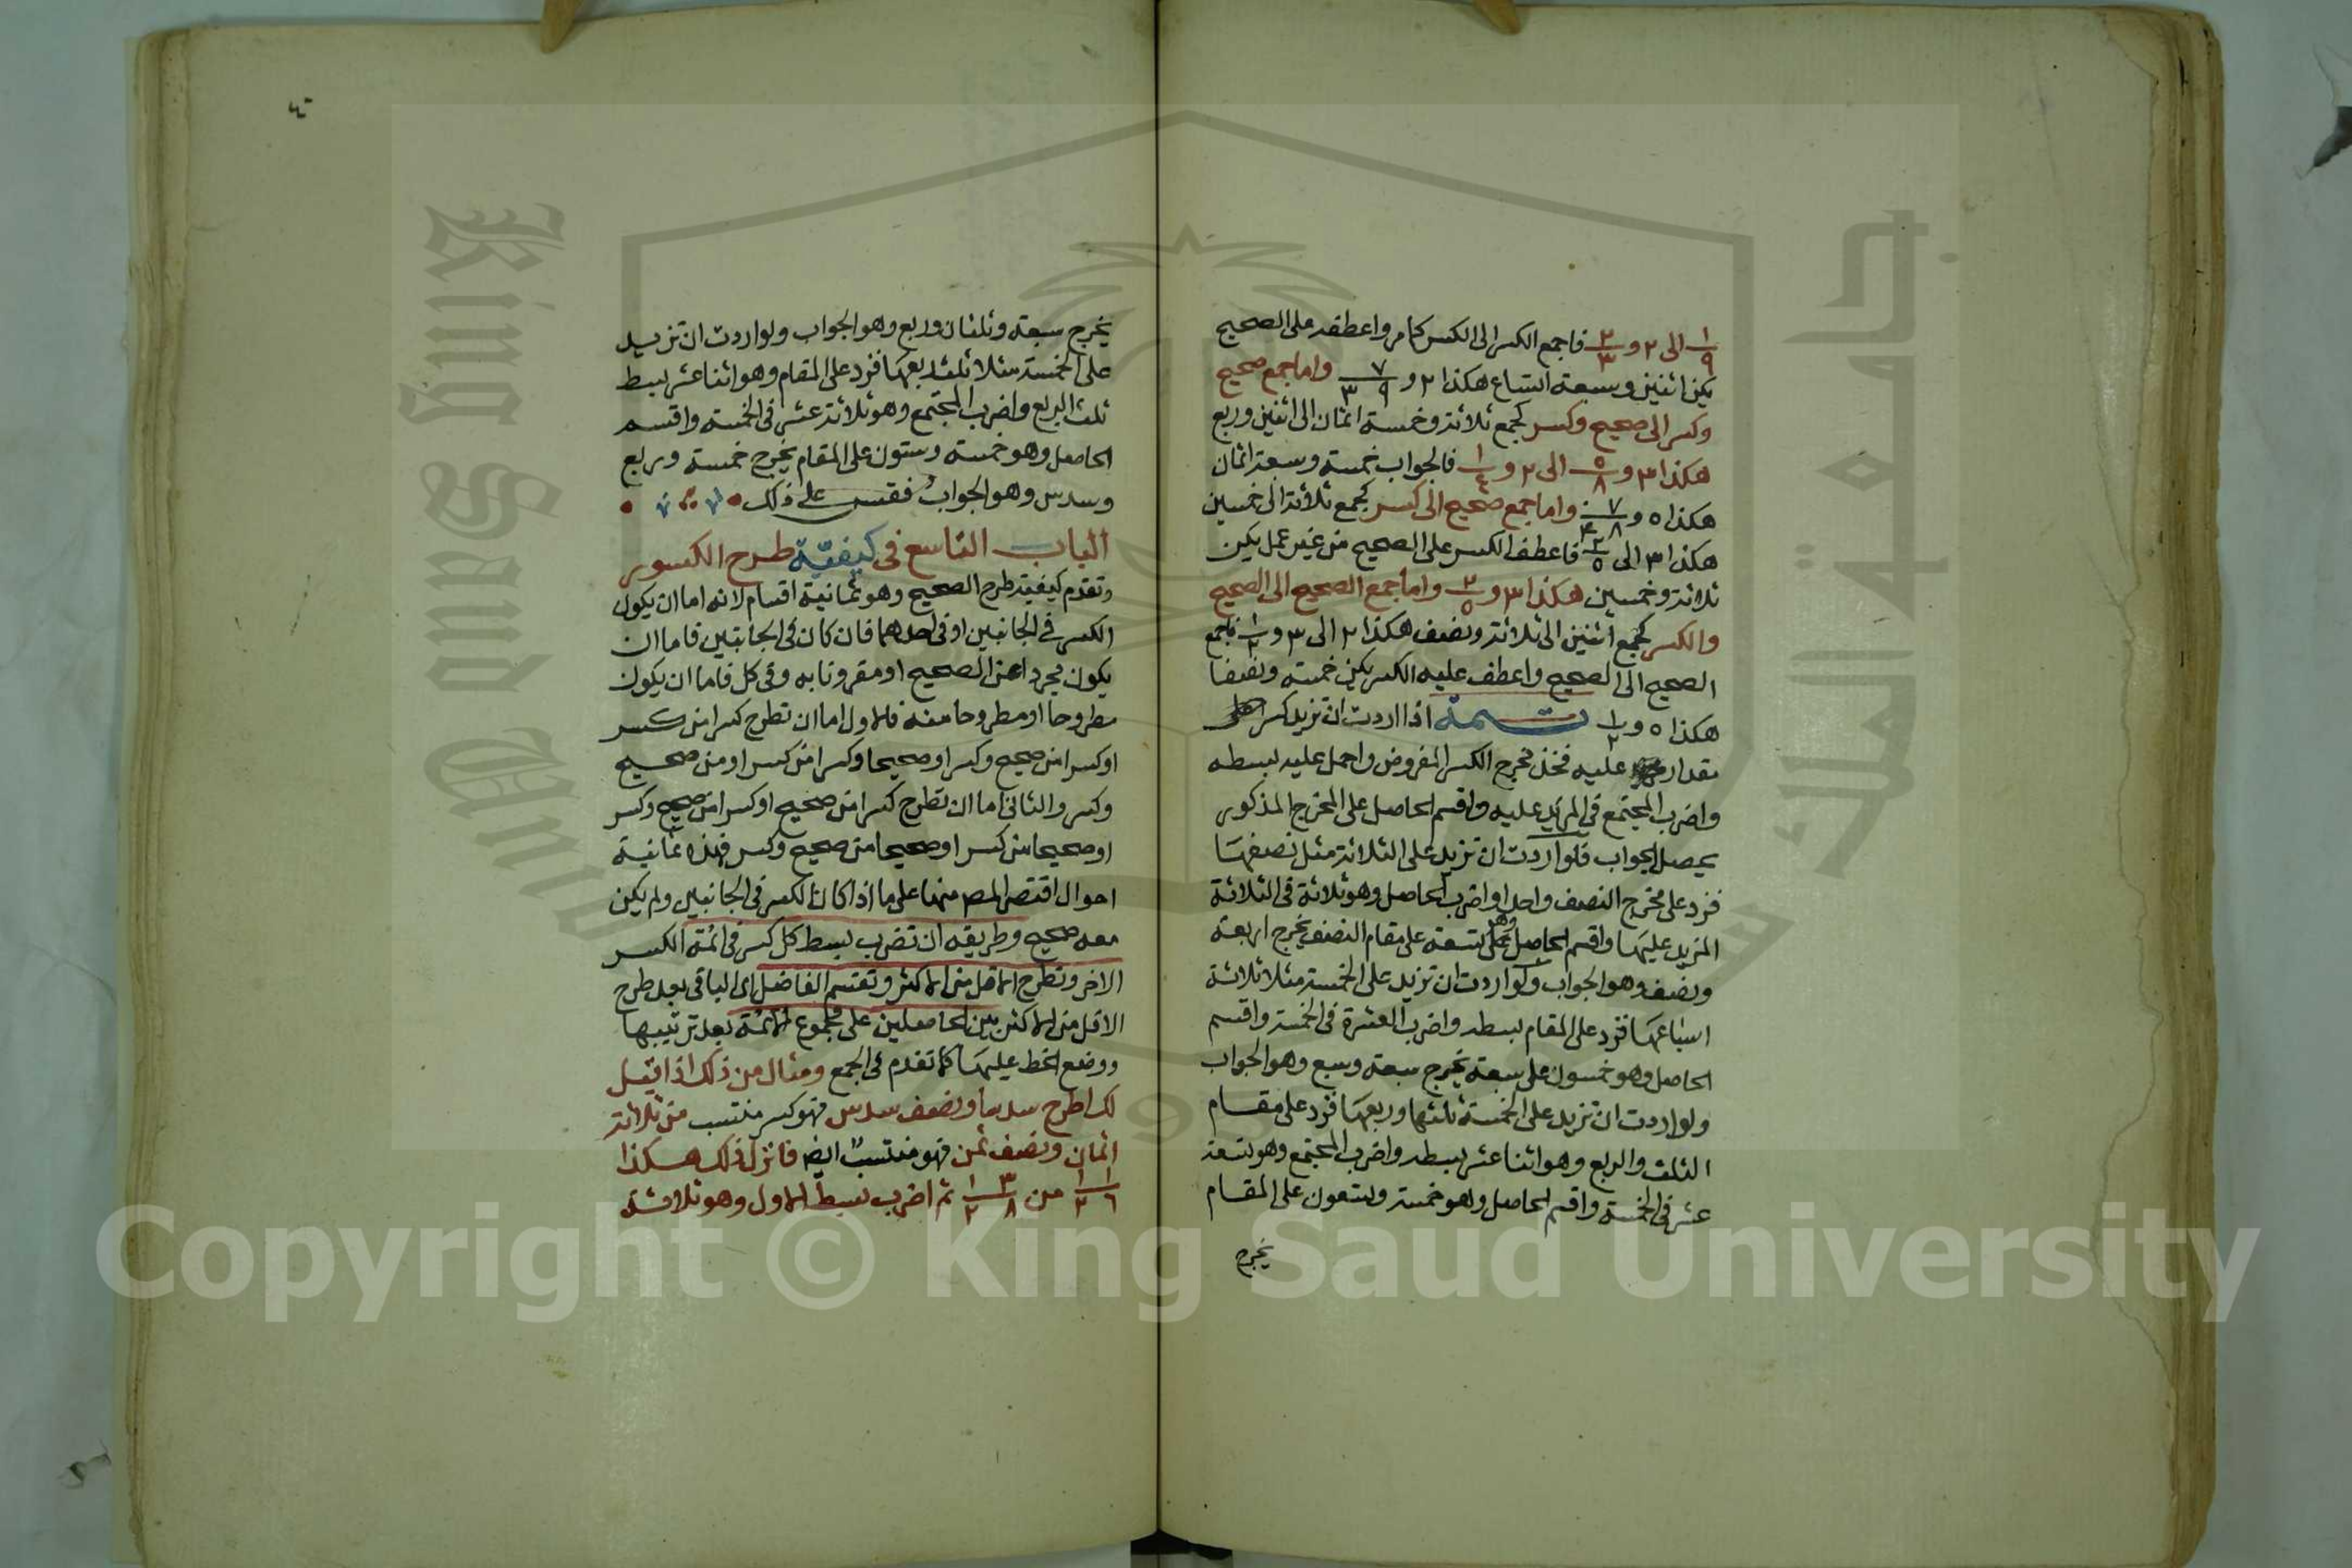 ١/٩ الى ٢ و ٢/٣ فاجمع الكسر الى الكسر كما مر واعطفه على الصحيح
يكن اثنين وسبعة اتساع هكذا ٢ و ٧/٩ ٣ واما جمع صحيح
وكسر الى صحيح وكسر كجمع ثلاثة وخمسة اثمان الى اثنين وربع
هكذا ٣ و ٥/٨ الى ٢ و ١/٤ فالجواب خمسة وسبعة اثمان
هكذا ٥ و ٧/٨ واما جمع صحيح الى كسر كجمع ثلاثة الى خمسين
هكذا ٣ الى ٢/٥ فاعطف الكسر على الصحيح من غير عمل يكن
ثلاثة وخمسين هكذا ٣ و ٢/٥ واما جمع الصحيح الى الصحيح
والكسر كجمع اثنين الى ثلاثة ونصف هكذا ٢ الى ٣ و ١/٢ فاجمع
الصحيح الى الصحيح واعطف عليه الكسر يكن خمسة ونصفا
هكذا ٥ و ١/٢ تتمة اذا اردت ان تزيد كسرا على
مقدار عليه فخذ مخرج الكسر المفروض واحمل عليه بسطه
واضرب المجتمع في المزيد عليه واقسم الحاصل على المخرج المذكور
يحصل الجواب فلو اردت ان تزيد على الثلاثة مثل نصفها
فزد على مخرج النصف واحدا واضرب الحاصل وهو ثلاثة في الثلاثة
المزيد عليها واقسم الحاصل وهو تسعة على مقام النصف يخرج اربعة
ونصف وهو الجواب ولو اردت ان تزيد على الخمسة مثلا ثلاثة
اسباعها فزد على المقام بسطه واضرب العشرة في الخمسة واقسم
الحاصل وهو خمسون على سبعة يخرج سبعة وسبع وهو الجواب
ولو اردت ان تزيد على الخمسة ثلثها وربعها فزد على مقام
الثلث والربع وهو اثنا عشر بسطه واضرب المجتمع وهو تسعة
عشر في الخمسة واقسم الحاصل وهو خمسة وتسعون على المقام
يخرج
٤٠
يخرج سبعة وثلثان وربع وهو الجواب ولو اردت ان تزيد
على الخمسة مثلا ثلث ربعها فزد على المقام وهو اثنا عشر بسط
ثلث الربع واضرب المجتمع وهو ثلاثة عشر في الخمسة واقسم
الحاصل وهو خمسة وستون على المقام يخرج خمسة وربع
وسدس وهو الجواب فقس على ذلك
الباب التاسع في كيفية طرح الكسور
وتقدم كيفية طرح الصحيح وهو ثمانية اقسام لانه اما ان يكون
الكسر في الجانبين او في احدهما فان كان في الجانبين فاما ان
يكون مجردا عن الصحيح او مقرونا به وفي كل فاما ان يكون
مطروحا او مطروحا منه فالاول اما ان تطرح كسرا من كسر
او كسرا من صحيح وكسر او صحيحا وكسرا من كسر او من صحيح
وكسر والثاني اما ان تطرح كسرا من صحيح او كسرا من صحيح وكسر
او صحيحا من كسر او صحيحا من صحيح وكسر فهذه ثمانية
احوال اقتصر المص منها على ما اذا كان الكسر في الجانبين ولم يكن
معه صحيح وطريقه ان تضرب بسط كل كسر في ائمة الكسر
الاخر وتطرح الاقل من الاكثر وتقسم الفاضل اى الباقى بعد طرح
الاقل من الاكثر بين الحاصلين على مجموع الائمة بعد ترتيبها
ووضع الخط عليها كما تقدم في الجمع ومثال من ذلك اذا قيل
لك اطرح سدسا ونصف سدس فهو كسر منتسب من ثلاثة
اثمان ونصف ثمن فهو منتسب ايضا فانزل ذلك هكذا
١ ١/٦ ٢ من ٣ ١/٨ ٢ ثم اضرب بسط الاول وهو ثلاثة
King Saud University
جامعة الملك سعود
Copyright © King Saud University